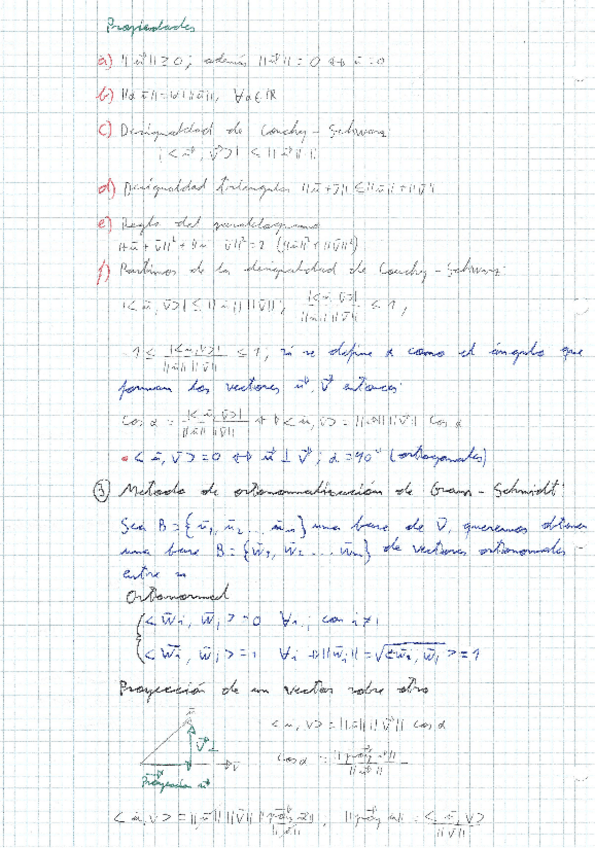 Propiedades
a) ||ū|| ≥ 0; además ||ū|| = 0 ↔ ū = 0
b) ||α ū|| = |α| ||ū||, ∀α ∈ ℝ
c) Desigualdad de Cauchy - Schwarz:
|<u⃗, v⃗>| ≤ ||u⃗|| ||v⃗||
d) Desigualdad triangular ||ū + v̄|| ≤ ||ū|| + ||v̄||
e) Regla del paralelogramo
||ū + v̄||² + ||ū - v̄||² = 2 (||ū||² + ||v̄||²)
f) Partimos de la desigualdad de Cauchy - Schwarz:
|<ū, v̄>| ≤ ||ū|| ||v̄||; |<ū, v̄>| / ||ū|| ||v̄|| ≤ 1,
1 ≤ |<ū, v̄>| / ||ū|| ||v̄|| ≤ 1; si se define α como el ángulo que
forman los vectores u⃗, v⃗ entonces:
cos α = |<ū, v̄>| / ||ū|| ||v̄|| ↔ <ū, v̄> = ||ū|| ||v̄|| cos α
• <ū, v̄> = 0 ↔ u⃗ ⊥ v⃗; α = 90° (ortogonales)
③ Metodo de ortonormalización de Gram - Schmidt:
Sea B = {ū₁, ū₂ ... ūₙ} una base de V, queremos obtener
una base B = {w̄₁, w̄₂ ... w̄ₙ} de vectores ortonormales
entre
Ortonormal
<w̄i, w̄j> = 0 ∀i,j con i ≠ j
<w̄i, w̄i> = 1 ∀i → ||w̄i|| = √<w̄i, w̄i> = 1
Proyección de un vector sobre otro
<ū, v̄> = ||ū|| ||v̄|| cos α
v⃗⊥
v̄
cos α = ||proy u⃗|| / ||u⃗||
Proyección u⃗
<ū, v̄> = ||ū|| ||v̄|| ||proy ū|| / ||ū||, ||proy ū|| = <ū, v̄> / ||v̄||